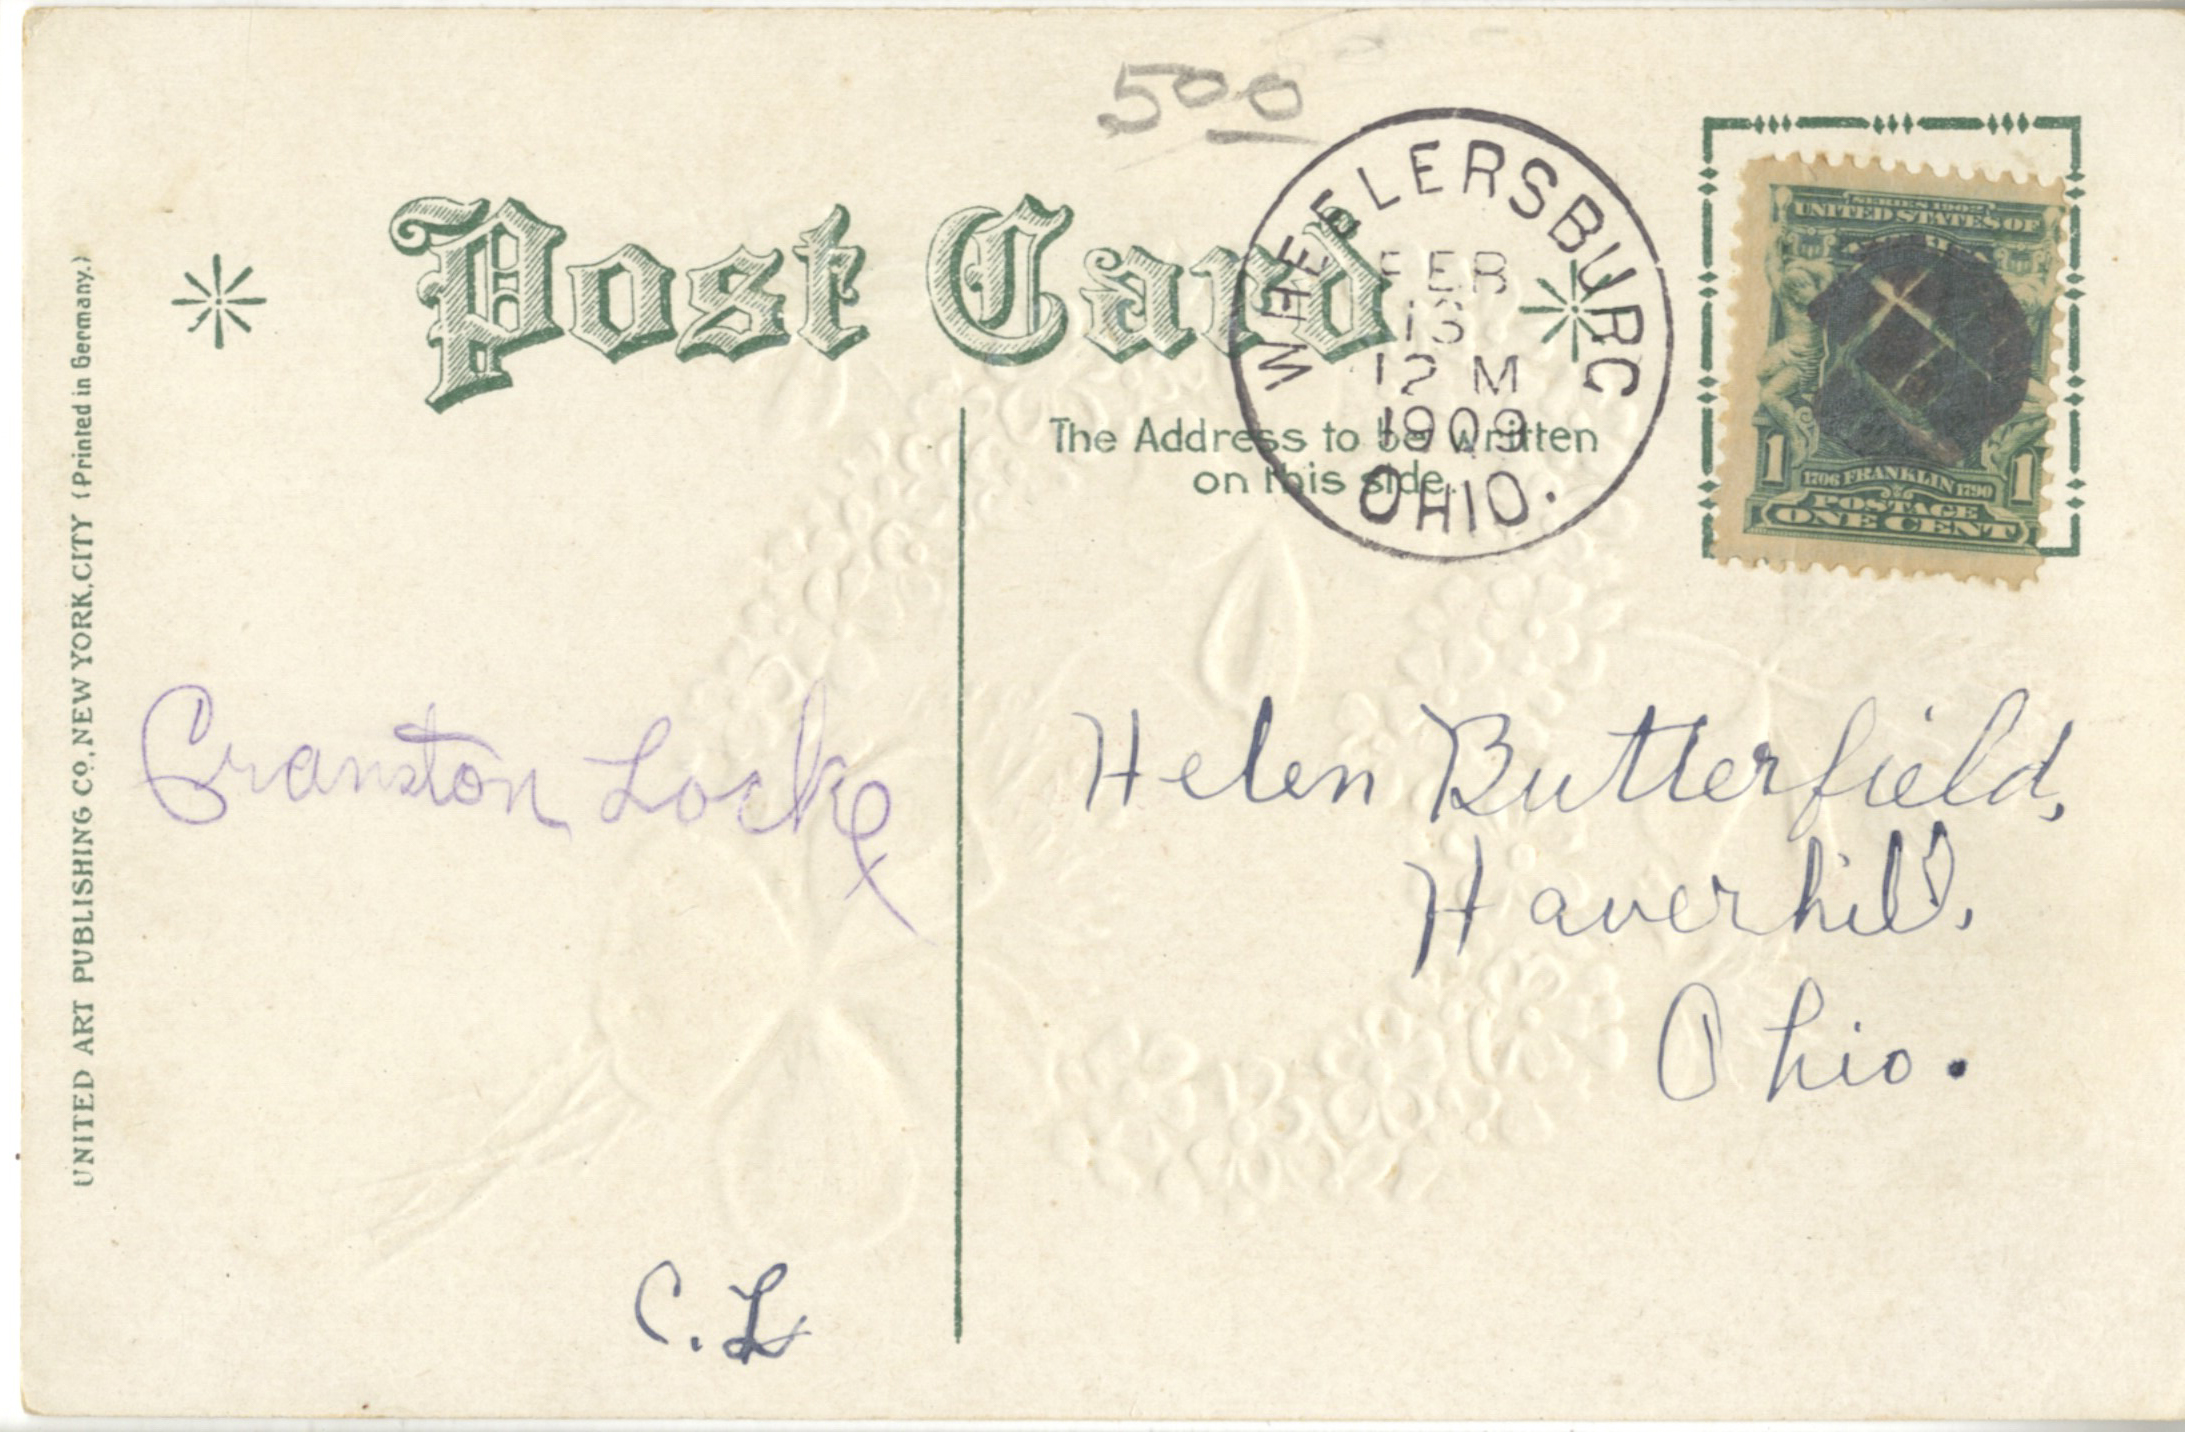 500
Post Card
WHEELERSBURG
FEB
13
12 M
1909
OHIO.
SERIES 1902
UNITED STATES OF
AMERICA
1 1706 FRANKLIN 1790 1
POSTAGE
ONE CENT
The Address to be written
on this side.
UNITED ART PUBLISHING CO., NEW YORK, CITY (Printed in Germany.)
Cranston Locke
Helen Butterfield,
Haverhill,
Ohio.
C. L